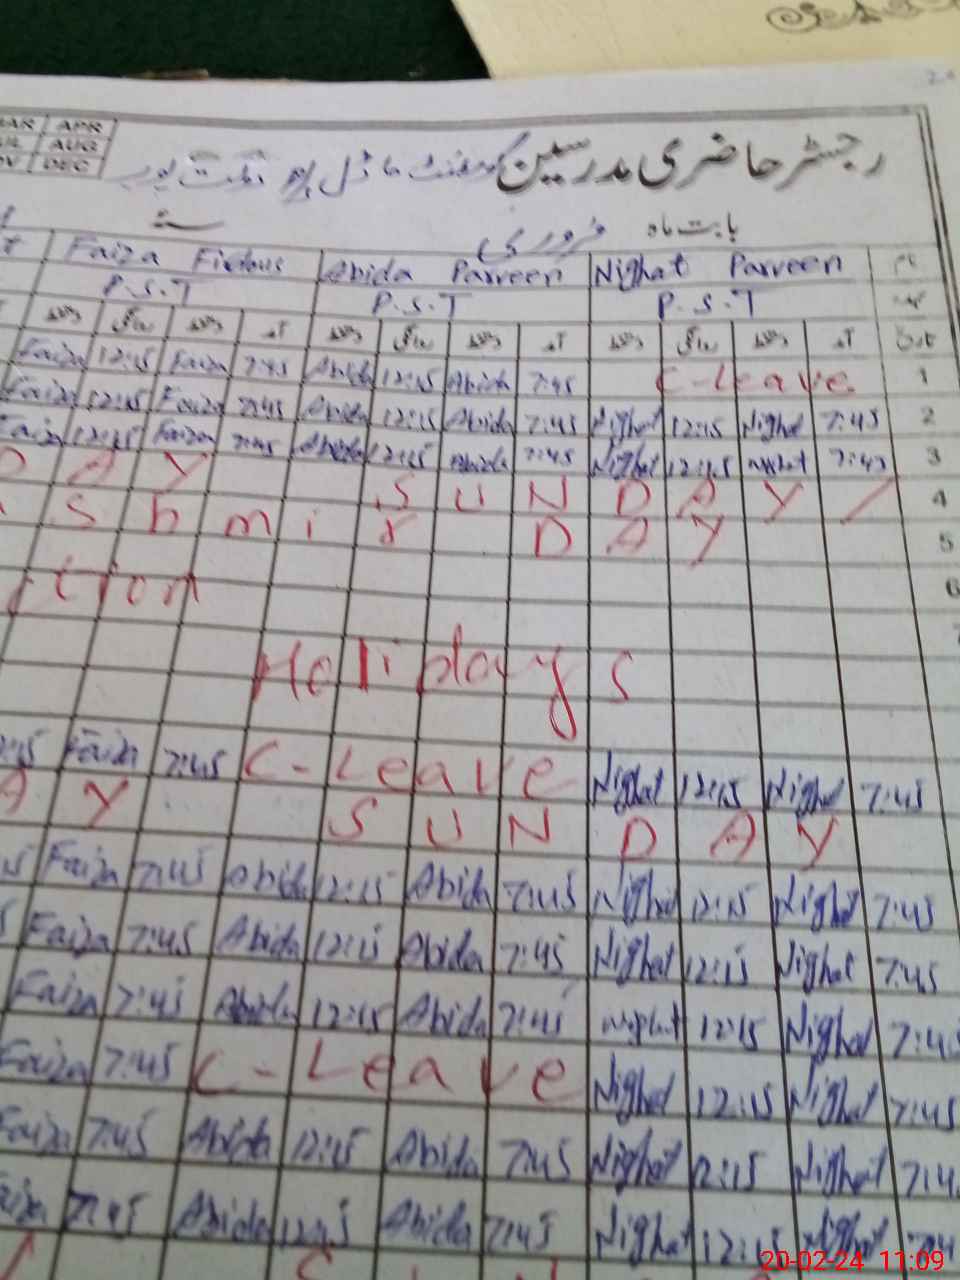 APR
AUG
DEC
رجسٹر حاضری مدرسین گورنمنٹ ماڈل
بابت ماہ فروری
Faiza Firdous Abida Parveen Nighat Parveen
P.S.T P.S.T P.S.T
Faiza 12:15 Faiza 7:45 Abida 12:15 Abida 7:45 C-Leave 1
Faiza 12:15 Faiza 7:45 Abida 12:15 Abida 7:45 Nighat 12:15 Nighat 7:45 2
Faiza 12:15 Faiza 7:45 Abida 12:15 Abida 7:45 Nighat 12:15 Nighat 7:45 3
D A Y S U N D A Y / 4
a S h m i r D A Y 5
ction 6
Holidays
2:15 Faiza 7:45 C-Leave Nighat 12:15 Nighat 7:45
A Y S U N D A Y
5 Faiza 7:45 Abida 12:15 Abida 7:45 Nighat 12:15 Nighat 7:45
Faiza 7:45 Abida 12:15 Abida 7:45 Nighat 12:15 Nighat 7:45
Faiza 7:45 Abida 12:15 Abida 7:45 Nighat 12:15 Nighat 7:45
Faiza 7:45 C-Leave Nighat 12:15 Nighat 7:45
Faiza 7:45 Abida 12:15 Abida 7:45 Nighat 12:15 Nighat 7:4
Faiza 7:45 Abida 12:15 Abida 7:45 Nighat 12:15 Nighat 7:4
20-02-24 11:09